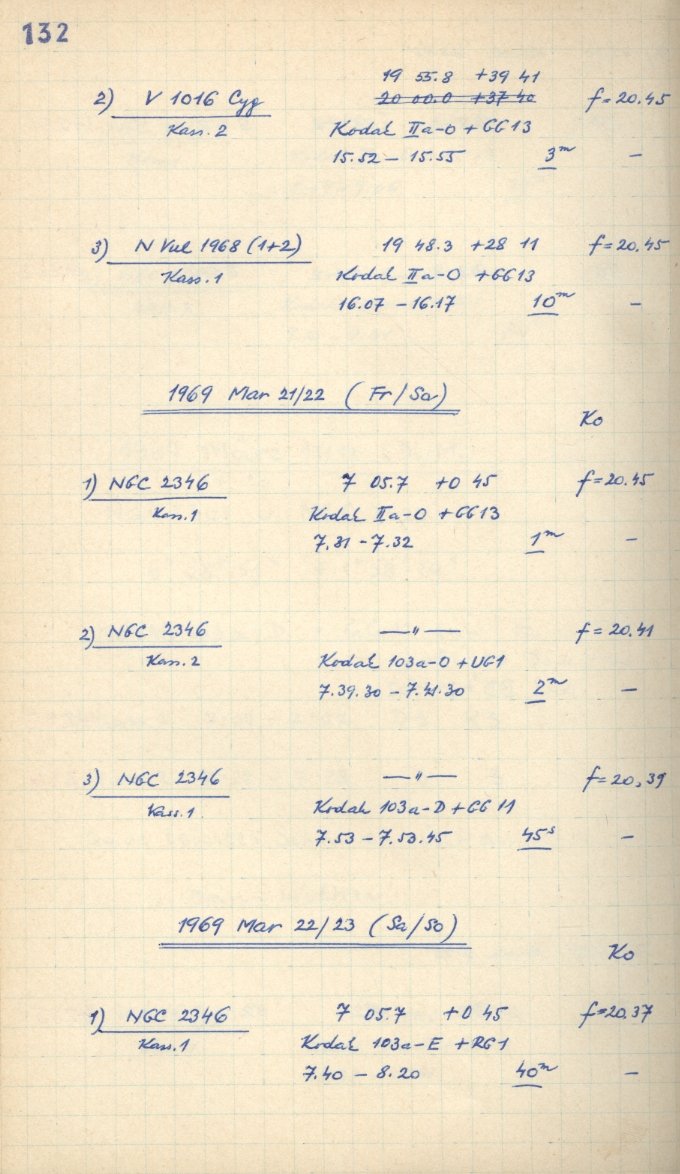 132
19 55.8 +39 41
2) V 1016 Cyg 20 00.0 +37 40 f = 20.45
Kass. 2 Kodak IIa-O + GG13
15.52 – 15.55 3m –
3) N Vul 1968 (1+2) 19 48.3 +28 11 f = 20.45
Kass. 1 Kodak IIa-O + GG13
16.07 – 16.17 10m –
1969 Mar 21/22 (Fr/Sa)
Ko
1) NGC 2346 7 05.7 +0 45 f = 20.45
Kass. 1 Kodak IIa-O + GG13
7.31 – 7.32 1m –
2) NGC 2346 —"— f = 20.41
Kass. 2 Kodak 103a-O + UG1
7.39.30 – 7.41.30 2m –
3) NGC 2346 —"— f = 20,39
Kass. 1 Kodak 103a-D + GG 11
7.53 – 7.53.45 45s –
1969 Mar 22/23 (Sa/So)
Ko
1) NGC 2346 7 05.7 +0 45 f = 20.37
Kass. 1 Kodak 103a-E + RG1
7.40 – 8.20 40m –